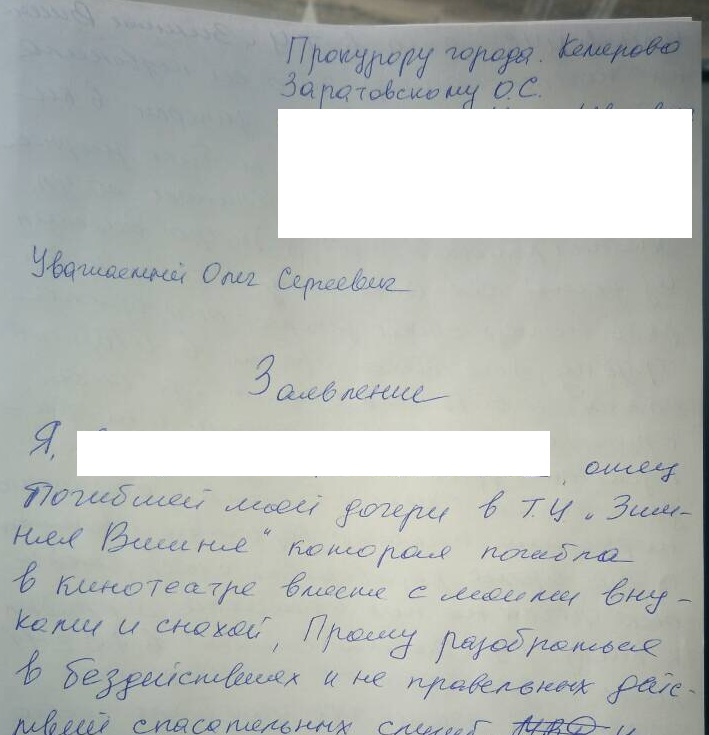 Прокурору города. Кемерово
Заратовскому О.С.
Уважаемый Олег Сергеевич
Заявление
Я,
, отец
Погибшей моей дочери в Т.Ц „Зим-
няя Вишня“ которая погибла
в кинотеатре вместе с моими вну-
ками и снохой, Прошу разобраться
в бездействиях и не правельных дейс-
твий спасательных служб МВД и